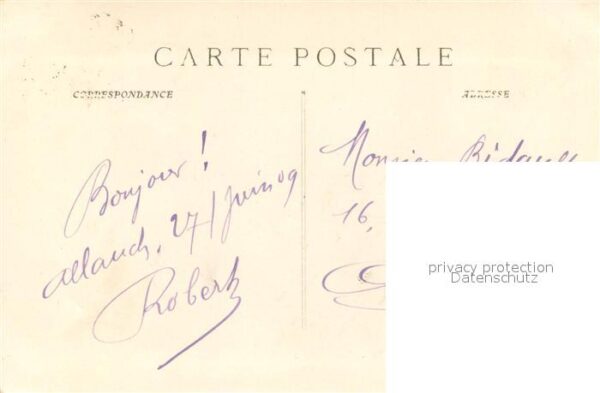 CARTE POSTALE
CORRESPONDANCE
ADRESSE
Bonjour !
allauch, 27/Juin 09
Robert
Monsieur
16,
privacy protection
Datenschutz